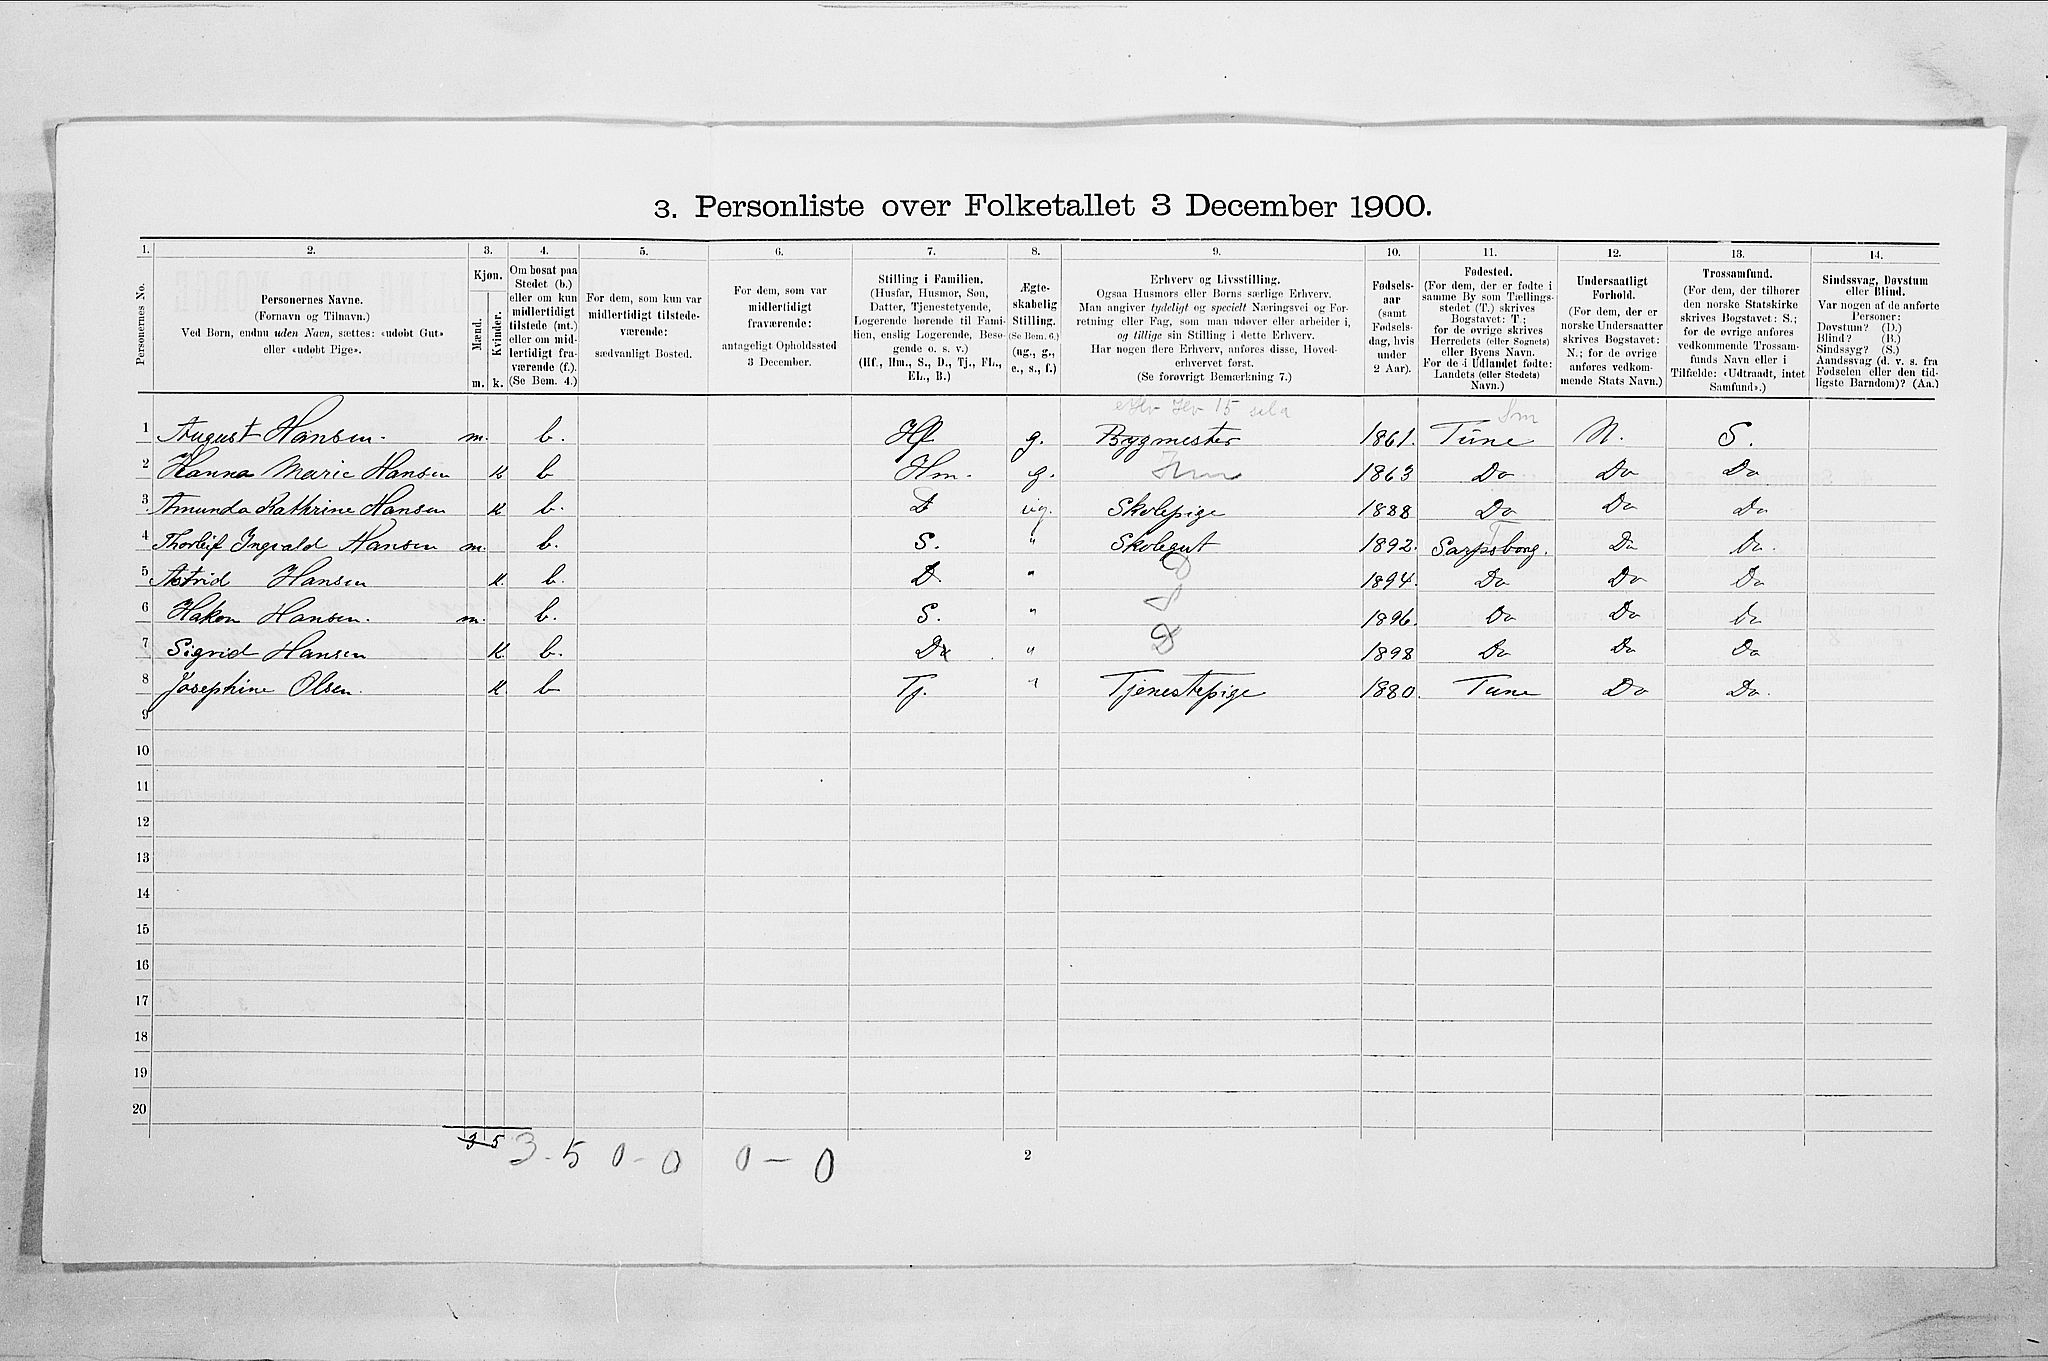 3. Personliste over Folketallet 3 December 1900.
1. 2. 3. 4. 5. 6. 7. 8. 9. 10. 11. 12. 13. 14.
Personernes No.
Personernes Navne.
(Fornavn og Tilnavn.)
Ved Børn, endnu uden Navn, sættes: «udøbt Gut»
eller «udøbt Pige».
Kjøn.
Mænd. Kvinder.
m. k.
Om bosat paa
Stedet (b.)
eller om kun
midlertidigt
tilstede (mt.)
eller om mid-
lertidigt fra-
værende (f.).
(Se Bem. 4.)
For dem, som kun var
midlertidigt tilstede-
værende:
sædvanligt Bosted.
For dem, som var
midlertidigt
fraværende:
antageligt Opholdssted
3 December.
Stilling i Familien.
(Husfar, Husmor, Søn,
Datter, Tjenestetyende,
Logerende hørende til Fami-
lien, enslig Logerende, Besø-
gende o. s. v.)
(Hf., Hm., S., D., Tj., FL.,
EL., B.)
Ægte-
skabelig
Stilling.
(Se Bem. 6.)
(ug., g.,
e., s., f.)
Erhverv og Livsstilling.
Ogsaa Husmors eller Børns særlige Erhverv.
Man angiver tydeligt og specielt Næringsvei og For-
retning eller Fag, som man udøver eller arbeider i,
og tillige sin Stilling i dette Erhverv.
Har nogen flere Erhverv, anføres disse, Hoved-
erhvervet først.
(Se forøvrigt Bemærkning 7.)
Fødsels-
aar
(samt
Fødsels-
dag, hvis
under
2 Aar).
Fødested.
(For dem, der er fødte i
samme By som Tællings-
stedet (T.) skrives
Bogstavet: T.;
for de øvrige skrives
Herredets (eller Sognets)
eller Byens Navn.
For de i Udlandet fødte:
Landets (eller Stedets)
Navn.)
Undersaatligt
Forhold.
(For dem, der er
norske Undersaatter
skrives Bogstavet:
N.; for de øvrige
anføres vedkom-
mende Stats Navn.)
Trossamfund.
(For dem, der tilhører
den norske Statskirke
skrives Bogstavet: S.;
for de øvrige anføres
vedkommende Trossam-
funds Navn eller i
Tilfælde: «Udtraadt, intet
Samfund».)
Sindssvag, Døvstum
eller Blind.
Var nogen af de anførte
Personer:
Døvstum? (D.)
Blind? (B.)
Sindssyg? (S.)
Aandssvag (d. v. s. fra
Fødselen eller den tid-
ligste Barndom)? (Aa.)
1 August Hansen. m. b. Hf g. Bygmester 1861. Tune N. S.
2 Hanna Marie Hansen k b Hm. g. Hm 1863 Do Do Do
3 Amunda Kathrine Hansen k b. D ug. Skolepige 1888 Do Do Do
4 Thorleif Ingvald Hansen m. b. S. " Skolegut 1892. Sarpsborg. T Do Do.
5 Astrid Hansen k. b. D. " D 1894. Do Do Do
6 Hakon Hansen. m. b. S. " S 1896. Do Do Do
7 Sigrid Hansen k. b. D. " D 1898 Do Do Do
8 Josephine Olsen. k. b Tj. " Tjenestepige 1880. Tune Do Do.
9
10
11
12
13
14
15
16
17
18
19
20
3 5 3 - 5 0 - 0 0 - 0
2